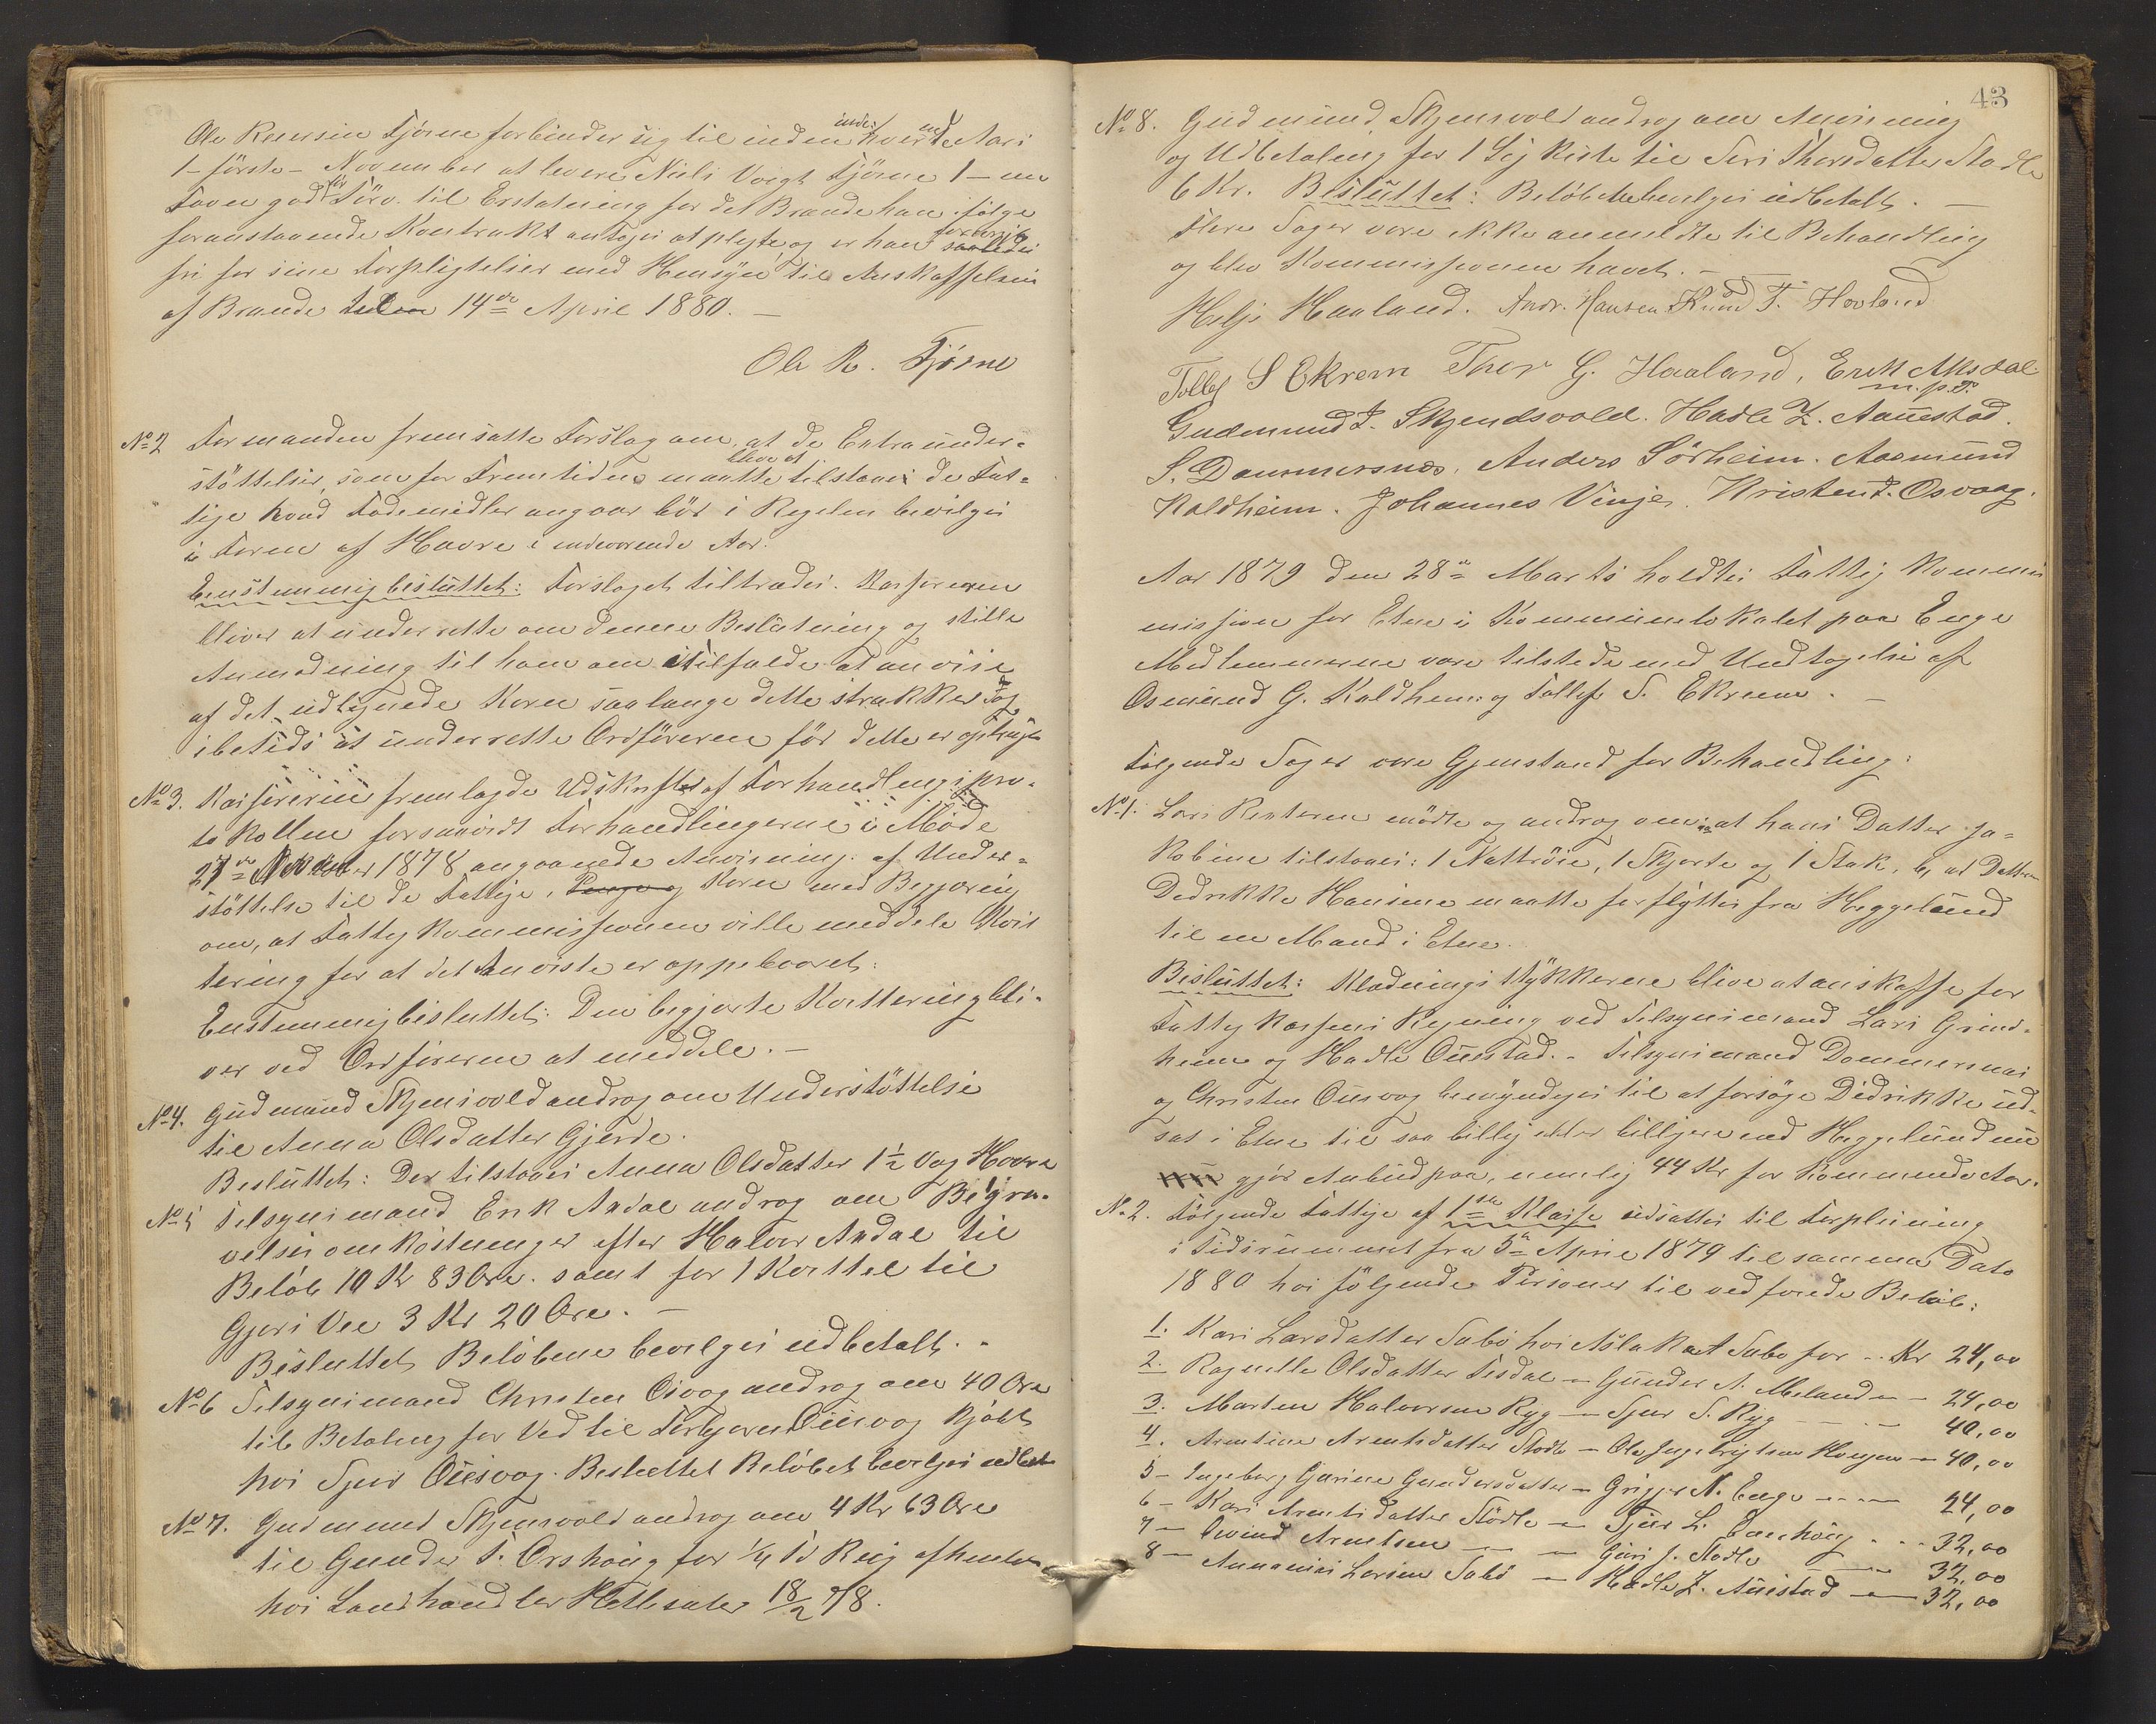 Ole Rasmusen Tjörne forbinder sig til inden hvert Aars
1 – förste – November at levere Niels Voigt Tjörne 1 – en
Favn god tör Törv. til Erstatning for det Brænde han ifölge
foranstaaende Kontrakt antoges at plegte og er han forövrigt
fri for sine Forpligtelser med Hensyn til Anskaffelsen
af Brænde 14de April 1880. –
Ole R. Tjörne
No 2 Formanden fremsatte Forslag om, at de Extraunder-
stöttelser, som for Fremtiden maatte blive at tilstaaes de Fat-
tige hvad Födemidler angaar bör i Regelen bevilges
i Form af Havre i indeværende Aar.
Enstemmig besluttet: Forslaget tiltrædes. Kassereren
bliver at underrette om denne Beslutning og stille
Anmodning til ham om i Tilfælde at anvise
af det udlignede Korn saalænge dette strækker To og
ibetids at underrette Ordföreren för dette er opbrugt
No 3. Kassereren fremlagde Udskrifter af Forhandlingspro-
tokollen forsaavidt Forhandlingerne i Möde
27de 1878 angaaende Anvisning af Under-
stöttelse til de Fattige, Penge og Korn med Begjæring
om, at Fattigkommissionen ville meddele Kvit
tering for at det Anviste er oppebaaret.
Enstemmig besluttet: Den begjærte Kvittering bli-
ver ved Ordföreren at meddele. –
No 4. Gudmund Skjensvold androg om Understöttelse
til Anna Olsdatter Gjerde.
Besluttet: Der tilstaaes Anna Olsdatter 1½ Vog Havre
No 5 Tilsynsmand Erik Axdal androg om Begra-
velsesomkostninger efter Halvor Axdal til
Belöb 10 Kr 83 Öre. samt for 1 Kvittel til
Gjeri Vee 3 Kr 20 Öre. –
Besluttet Belöbene bevilges udbetalt. –
No 6 Tilsynsmand Christen Osvog androg om 40 Öre
til Betaling for Ved til Torbjoren Ousvog kjöbt
hos Sjur Ousvog. Besluttet Belöbet bevilges udbet
No 7. Gudmund Skjensvold androg om 4 Kr 63 Öre
til Gunder T. Orshoug for ¼ Td Rug afhentet
hos Landhandler Hetlesater 18/2 78.
43
No 8. Gudmund Skjensvold androg om Anvisning
og Udbetaling for 1 Lig Kiste til Siri Thorsdatter Stödle
6 Kr. Besluttet: Belöbet bevilges udbetalt. –
Flere Sager vare ikke anmeldte til Behandling
og blev Kommissionen hævet. –
Helje Haaland. Andr. Hansen Knud T. Hovland
Tollef S Ekrem Thor G. Haaland, Erik Aksdal
m.p.P.
Gudmund T. Skjendsvold. Hadle Z. Aanestad.
S. Dommersnes. Anders Sörheim. Aasmund
Kaldheim. Johannes Vinje. Kristen T. Osvaag.
Aar 1879 den 28de Marts holdtes Fattig Kommis
mission for Etne i Kommunelokalet paa Enge
Medlemmerne vare tilstede med Undtagelse af
Osmund G. Kaldheim og Tollef S. Ekreim. –
Fölgende Sager vare Gjenstand for Behandling:
No 1. Lars Renteren mödte og androg om at hans Datter Ja-
kobine tilstaaes: 1 Nattröie, 1 Skjorte og 1 Stak, b, at Datteren
Dedrikke Hansine maatte forflyttes fra Heggelund
til en Mand i Etne.
Besluttet: Klædningsstykkerne blive at anskaffe for
Fattigkassens Regning ved Tilsynsmand Lars Grind-
heim og Hadle Ouestad. – Tilsynsmand Dommersnes
og Christen Ousvog bemyndiges til at forsöge Didrikke ud-
sat i Etne til saa billig eller billigere end Heggelund nu
gjör Anbud paa, nemlig 44 Kr for kommende Aar.
No 2. Fölgende Fattige af 1ste Klasse udsattes til Forpleining
i Tidsrummet fra 5te April 1879 til samme Dato
1880 hos fölgende Personer til vedföiede Belöb:
1. Kari Larsdatter Sæbö hos Aslak A Sæbö for -- Kr 24,00
2. Ragnilde Olsdatter Tesdal – Gunder A. Meland – – 24,00
3. Marten Halvorsen Ryg – Sjur S. Ryg – – – 40,00
4. Arentine Arentsdatter Stödle – Ole Ingebrigtsen Haugen – 40,00
5 – Ingeborg Gurine Gundersdatter – Grigger N. Enge – – – 24,00
6 – Kari Arentsdatter Stödle – Sjur L. – – 32,00
7 – Eivind Arentsen – – Guri J. Stödle – – 32,00
8 – Larsen Sæbö – Hadle Z. Auestad – – 32,00